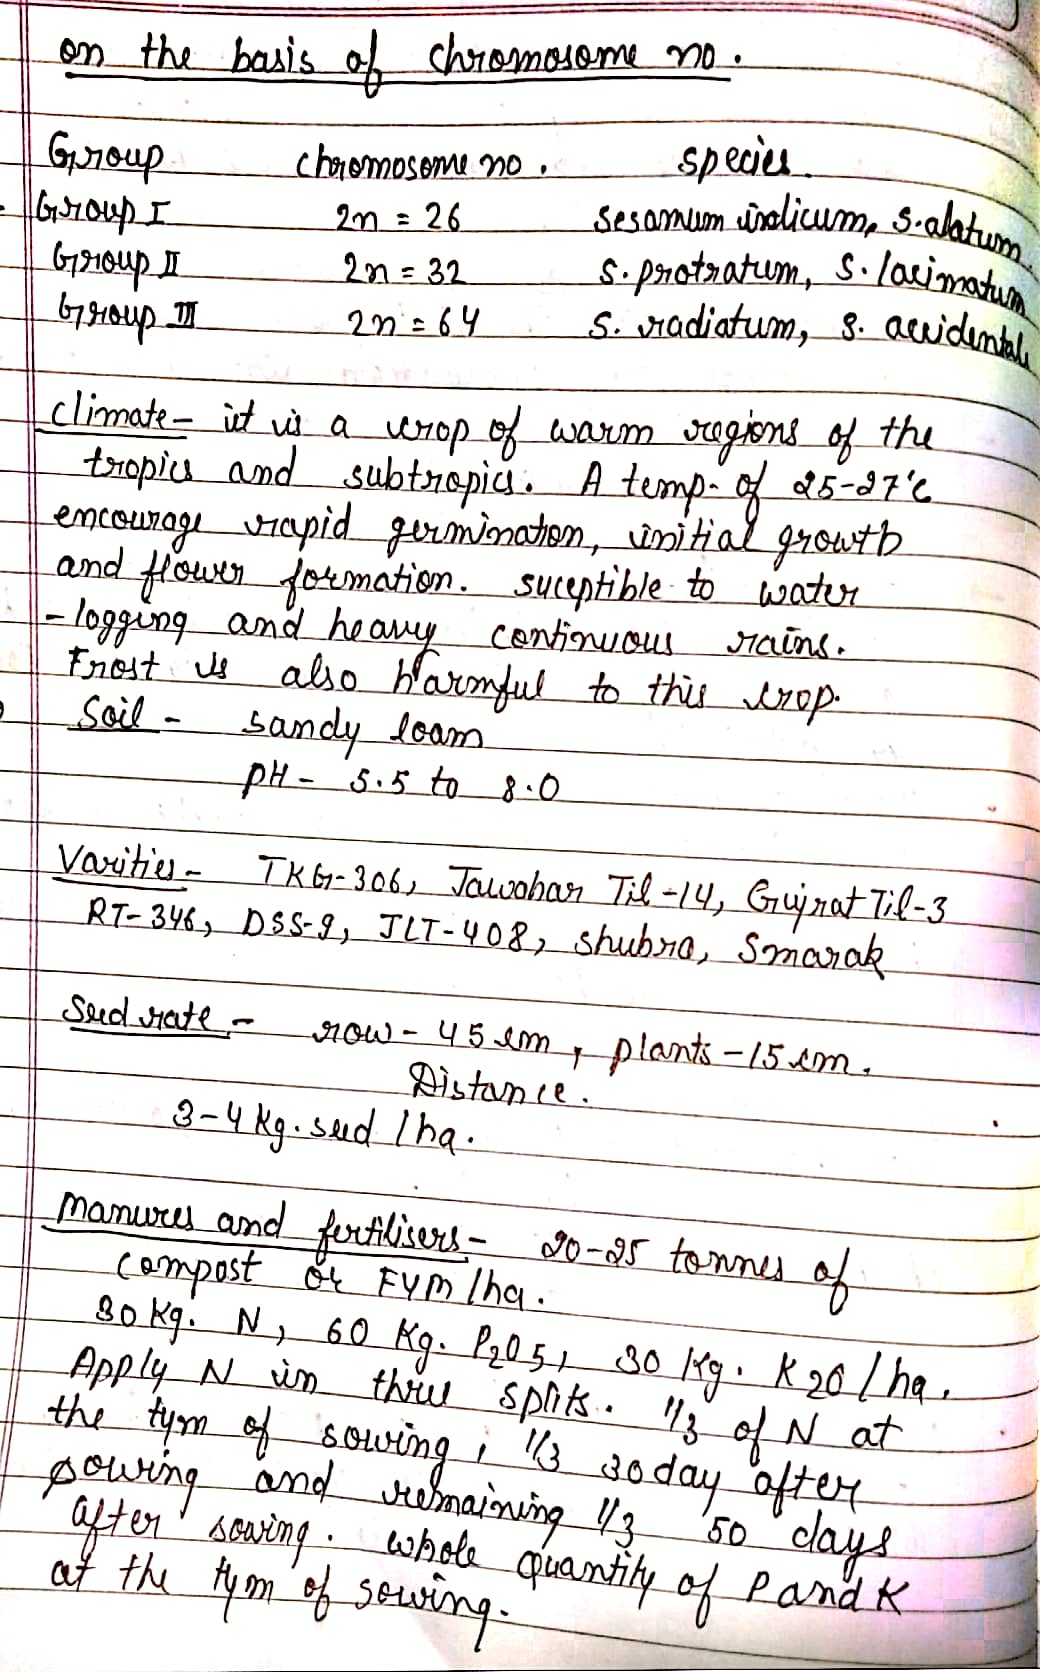 on the basis of chromosome no.
Group chromosome no. species
Group I 2n = 26 sesamum indicum, s. alatum
Group II 2n = 32 s. protratum, s. lacimatum
Group III 2n = 64 s. radiatum, s. accidentale
climate - it is a crop of warm regions of the
tropics and subtropics. A temp. of 25-27°c
encourage rapid germination, initial growth
and flower formation. suceptible to water
- logging and heavy continuous rains.
Frost is also harmful to this crop.
Soil - sandy loam
pH - 5.5 to 8.0
Varities - TKG-306, Jawahar Til-14, Gujrat Til-3
RT-346, DSS-9, JLT-408, shubra, Smarak
Seed rate - row - 45 cm, plants - 15 cm.
Distance.
3-4 kg. seed / ha.
Manures and fertilisers - 20-25 tonnes of
compost or FYM / ha.
30 kg. N, 60 kg. P205, 30 kg. K20 / ha.
Apply N in three splits. 1/3 of N at
the tym of sowing, 1/3 30 day after
sowing and remaining 1/3 50 days
after sowing. whole quantity of P and K
at the tym of sowing.